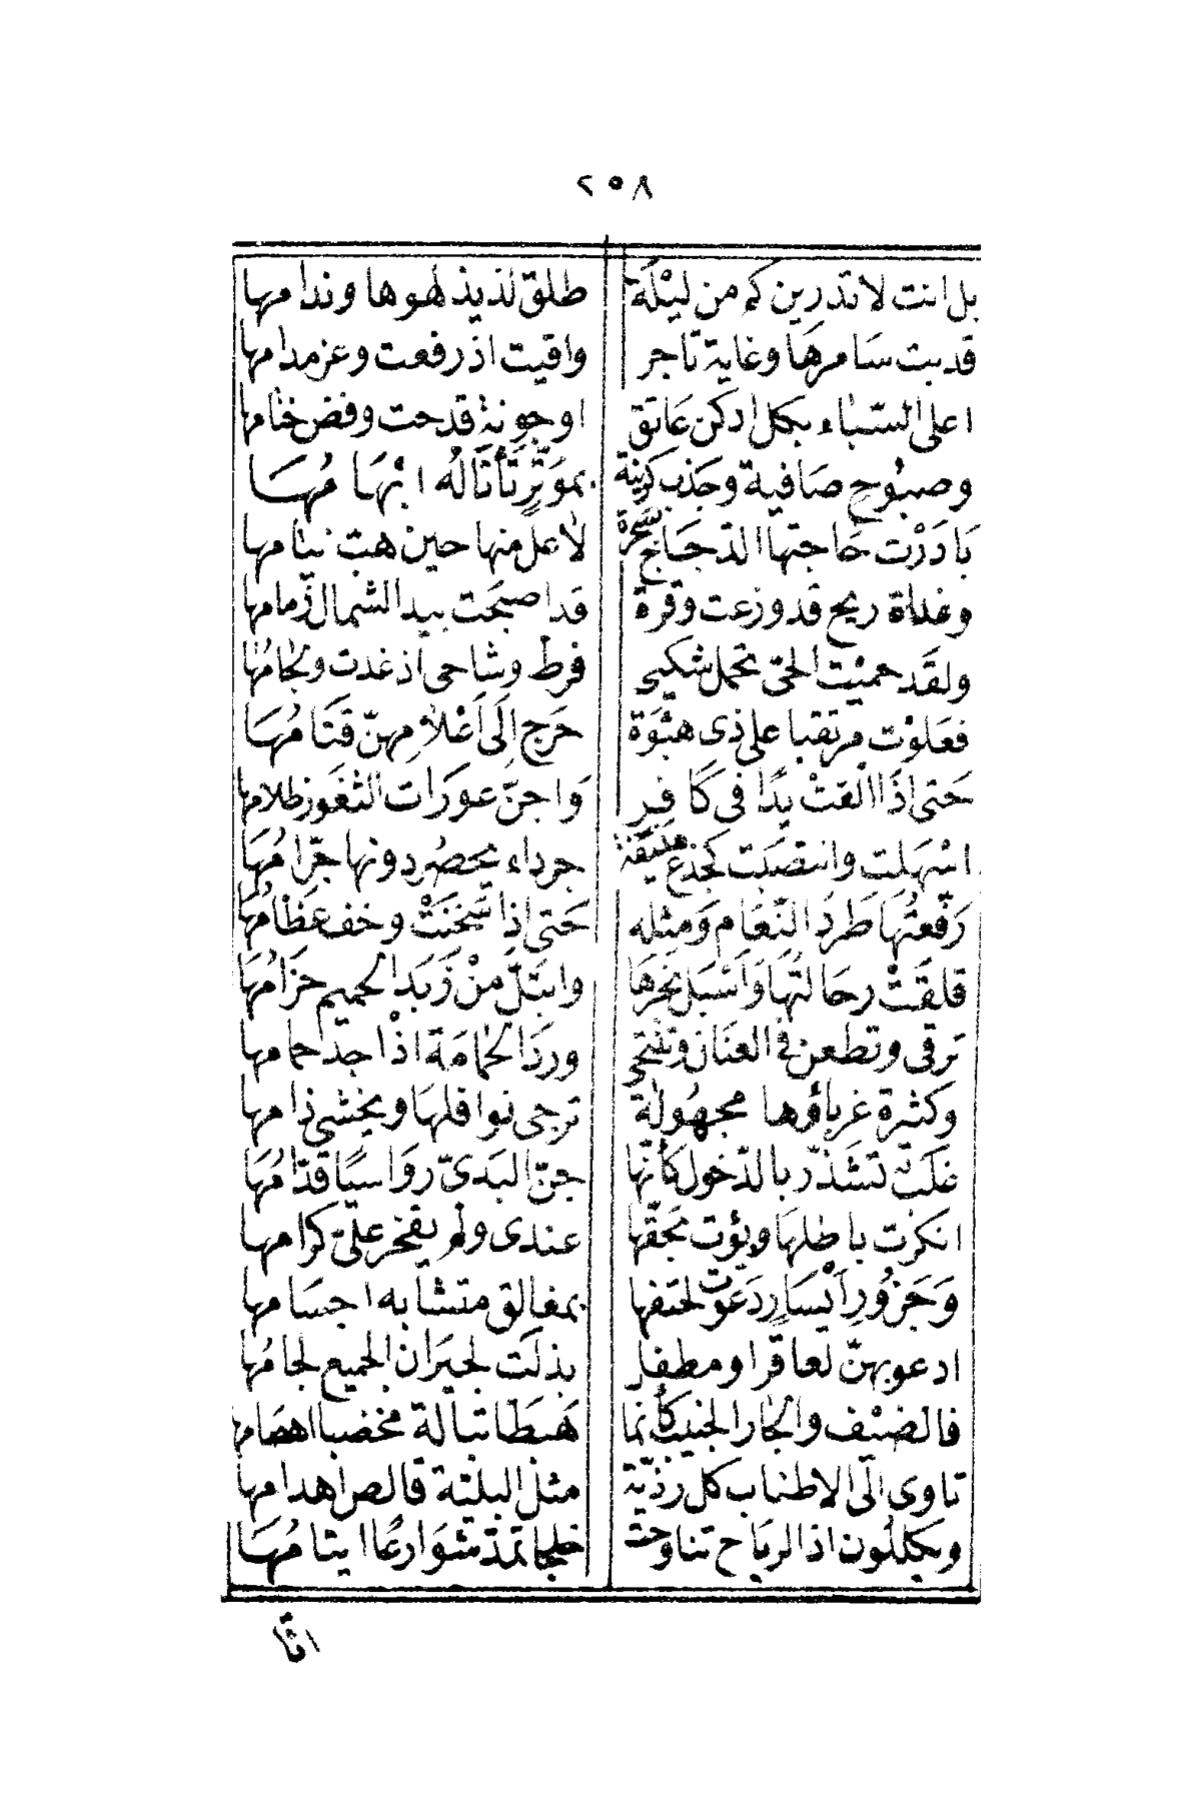 ٢٥٨
بل انت لا تدرين كم من ليْلَة طلق لذيذ لهوها وندامها
قد بت سَامرهَا وغاية تاجر وافيت اذ رفعت وعز مدامها
اعلى السّباء بكل ادكن عَاتق او جونة قدحت وفض ختامها
وصبُوح صَافية وجَذب كرينة بموَتّرٍ تَأتَالُه ابْهَامُهَا
بَادَرْت حَاجتها الدّجَاج بسُحْرة لاعل منها حين هبّ نيامها
وغداة ريح قد وزعت وقرة قد اصبحَت بيد الشمال زمامها
ولقَد حميْت الحىّ تحمل شكتى فرط وشاحى اذ غدت ولجامُها
فعَلوْت مرتقبا على ذى هبْوَة حَرج إلَى أعْلامهنّ قتَامُهَا
حَتى اذَا القتْ يدًا فى كَافر وَاجنّ عورَات الثغور ظلامها
اسْهَلت وانتصَبَت كجذع منيفة جرداء يحصر دونها جرّامُهَا
رَفّعتُهَا طَردَ النّعَام وَمثله حَتى إذا سَخنَتْ وخف عظَامُهَا
قلقَتْ رحَالتُهَا وَاسْبَل نحْرهَا وابتَلّ منْ زَبَد الحميم حزَامُهَا
ترقى وتطعن فى العنَان وتنتحى وردَ الحمَامَة اذْا جدّ حمامها
وكثيرة غرباؤها مجهُولة ترجى نوافلهَا ويخشى ذامها
غلبٌ تَشذّر بالذّحول كأنّها جنّ البَدىّ روَاسيًا اقدَامُهَا
انكرت باطلهَا وبؤت بحَقّها عندى ولم يفخر علىّ كرامها
وَجَزُورِ أيْسَارٍ دَعَوْت لحتفها بمغالق متشابه اجسَامها
ادعو بهنّ لعاقر او مطفل بذلَت لجيرَان الجميع لحامُها
فالضيْف والجار الجنيبُ كأنما هَبطَا تبالة مخضبا اهضامها
تاوى الَى الاطناب كل رذيّة مثل البليّة قالص اهدامها
ويكللُون اذا الرياح تناوحتْ خلجا تمدّ شوَارعًا ايتامُهَا